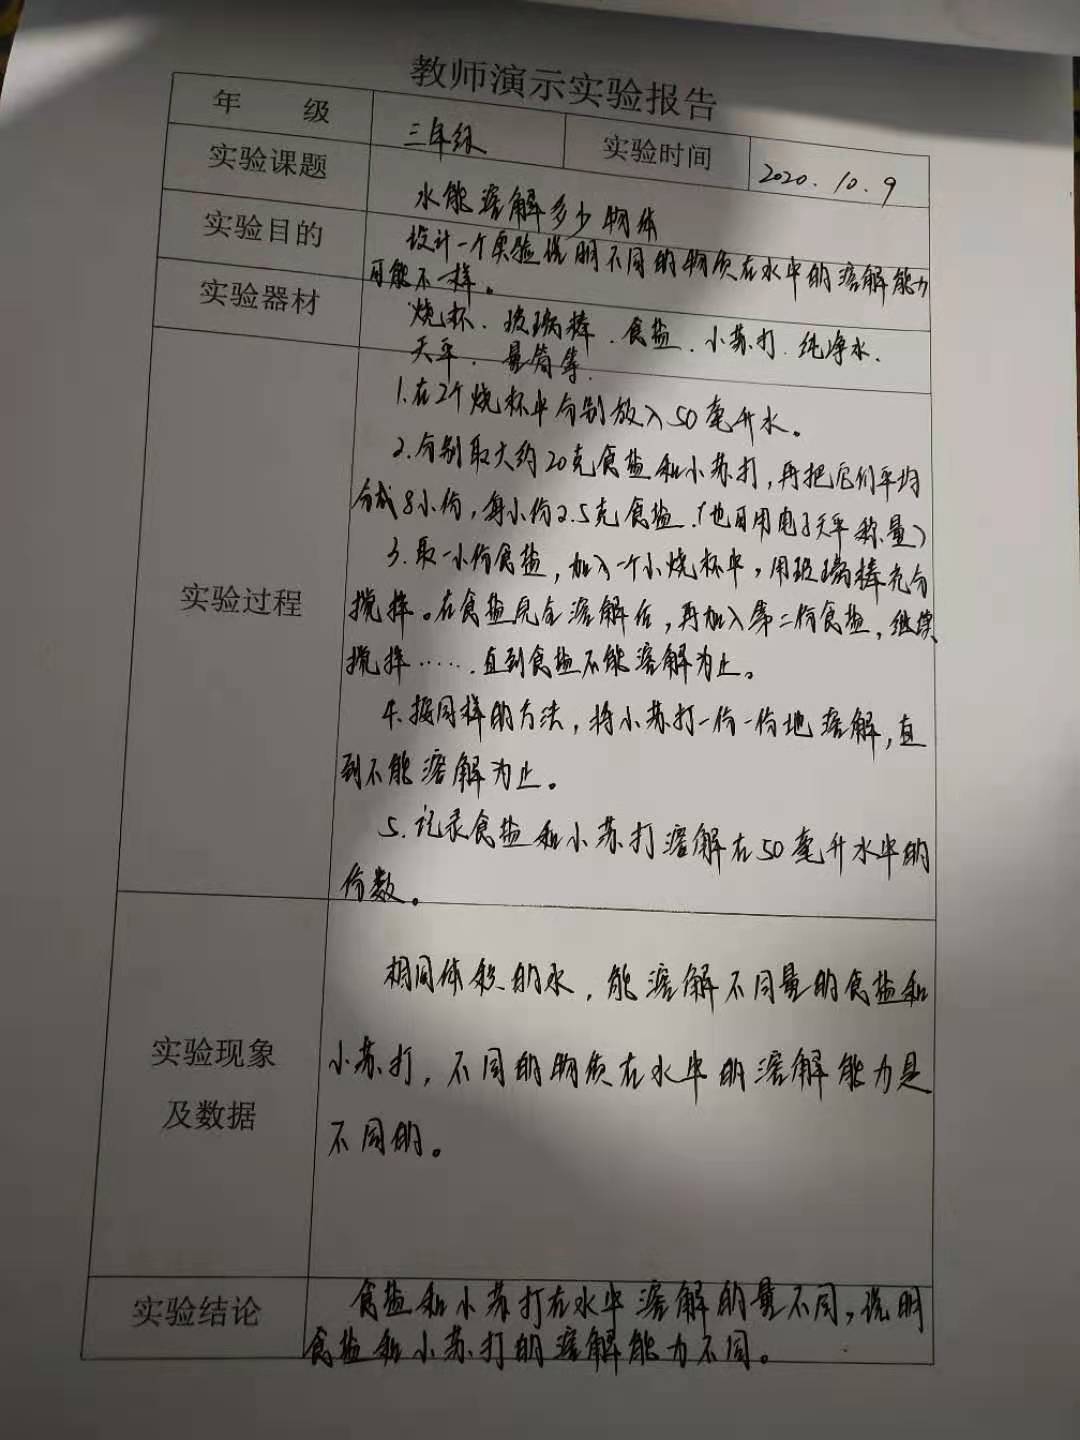 教师演示实验报告
年 级 三年级 实验时间 2020.10.9
实验课题 水能溶解多少物体
实验目的 设计一个实验说明不同的物质在水中的溶解能力
可能不一样。
实验器材 烧杯、玻璃棒、食盐、小苏打、纯净水、
天平、量筒等.
实验过程
1.在2个烧杯中分别放入50毫升水。
2.分别取大约20克食盐和小苏打,再把它们平均
分成8小份,每小份2.5克食盐.(也可用电子天平称量)
3.取一小份食盐,加入一个小烧杯中,用玻璃棒充分
搅拌。在食盐完全溶解后,再加入第二份食盐,继续
搅拌……直到食盐不能溶解为止。
4.按同样的方法,将小苏打一份一份地溶解,直
到不能溶解为止。
5.记录食盐和小苏打溶解在50毫升水中的
份数。
实验现象
及数据
相同体积的水,能溶解不同量的食盐和
小苏打,不同的物质在水中的溶解能力是
不同的。
实验结论 食盐和小苏打在水中溶解的量不同,说明
食盐和小苏打的溶解能力不同。